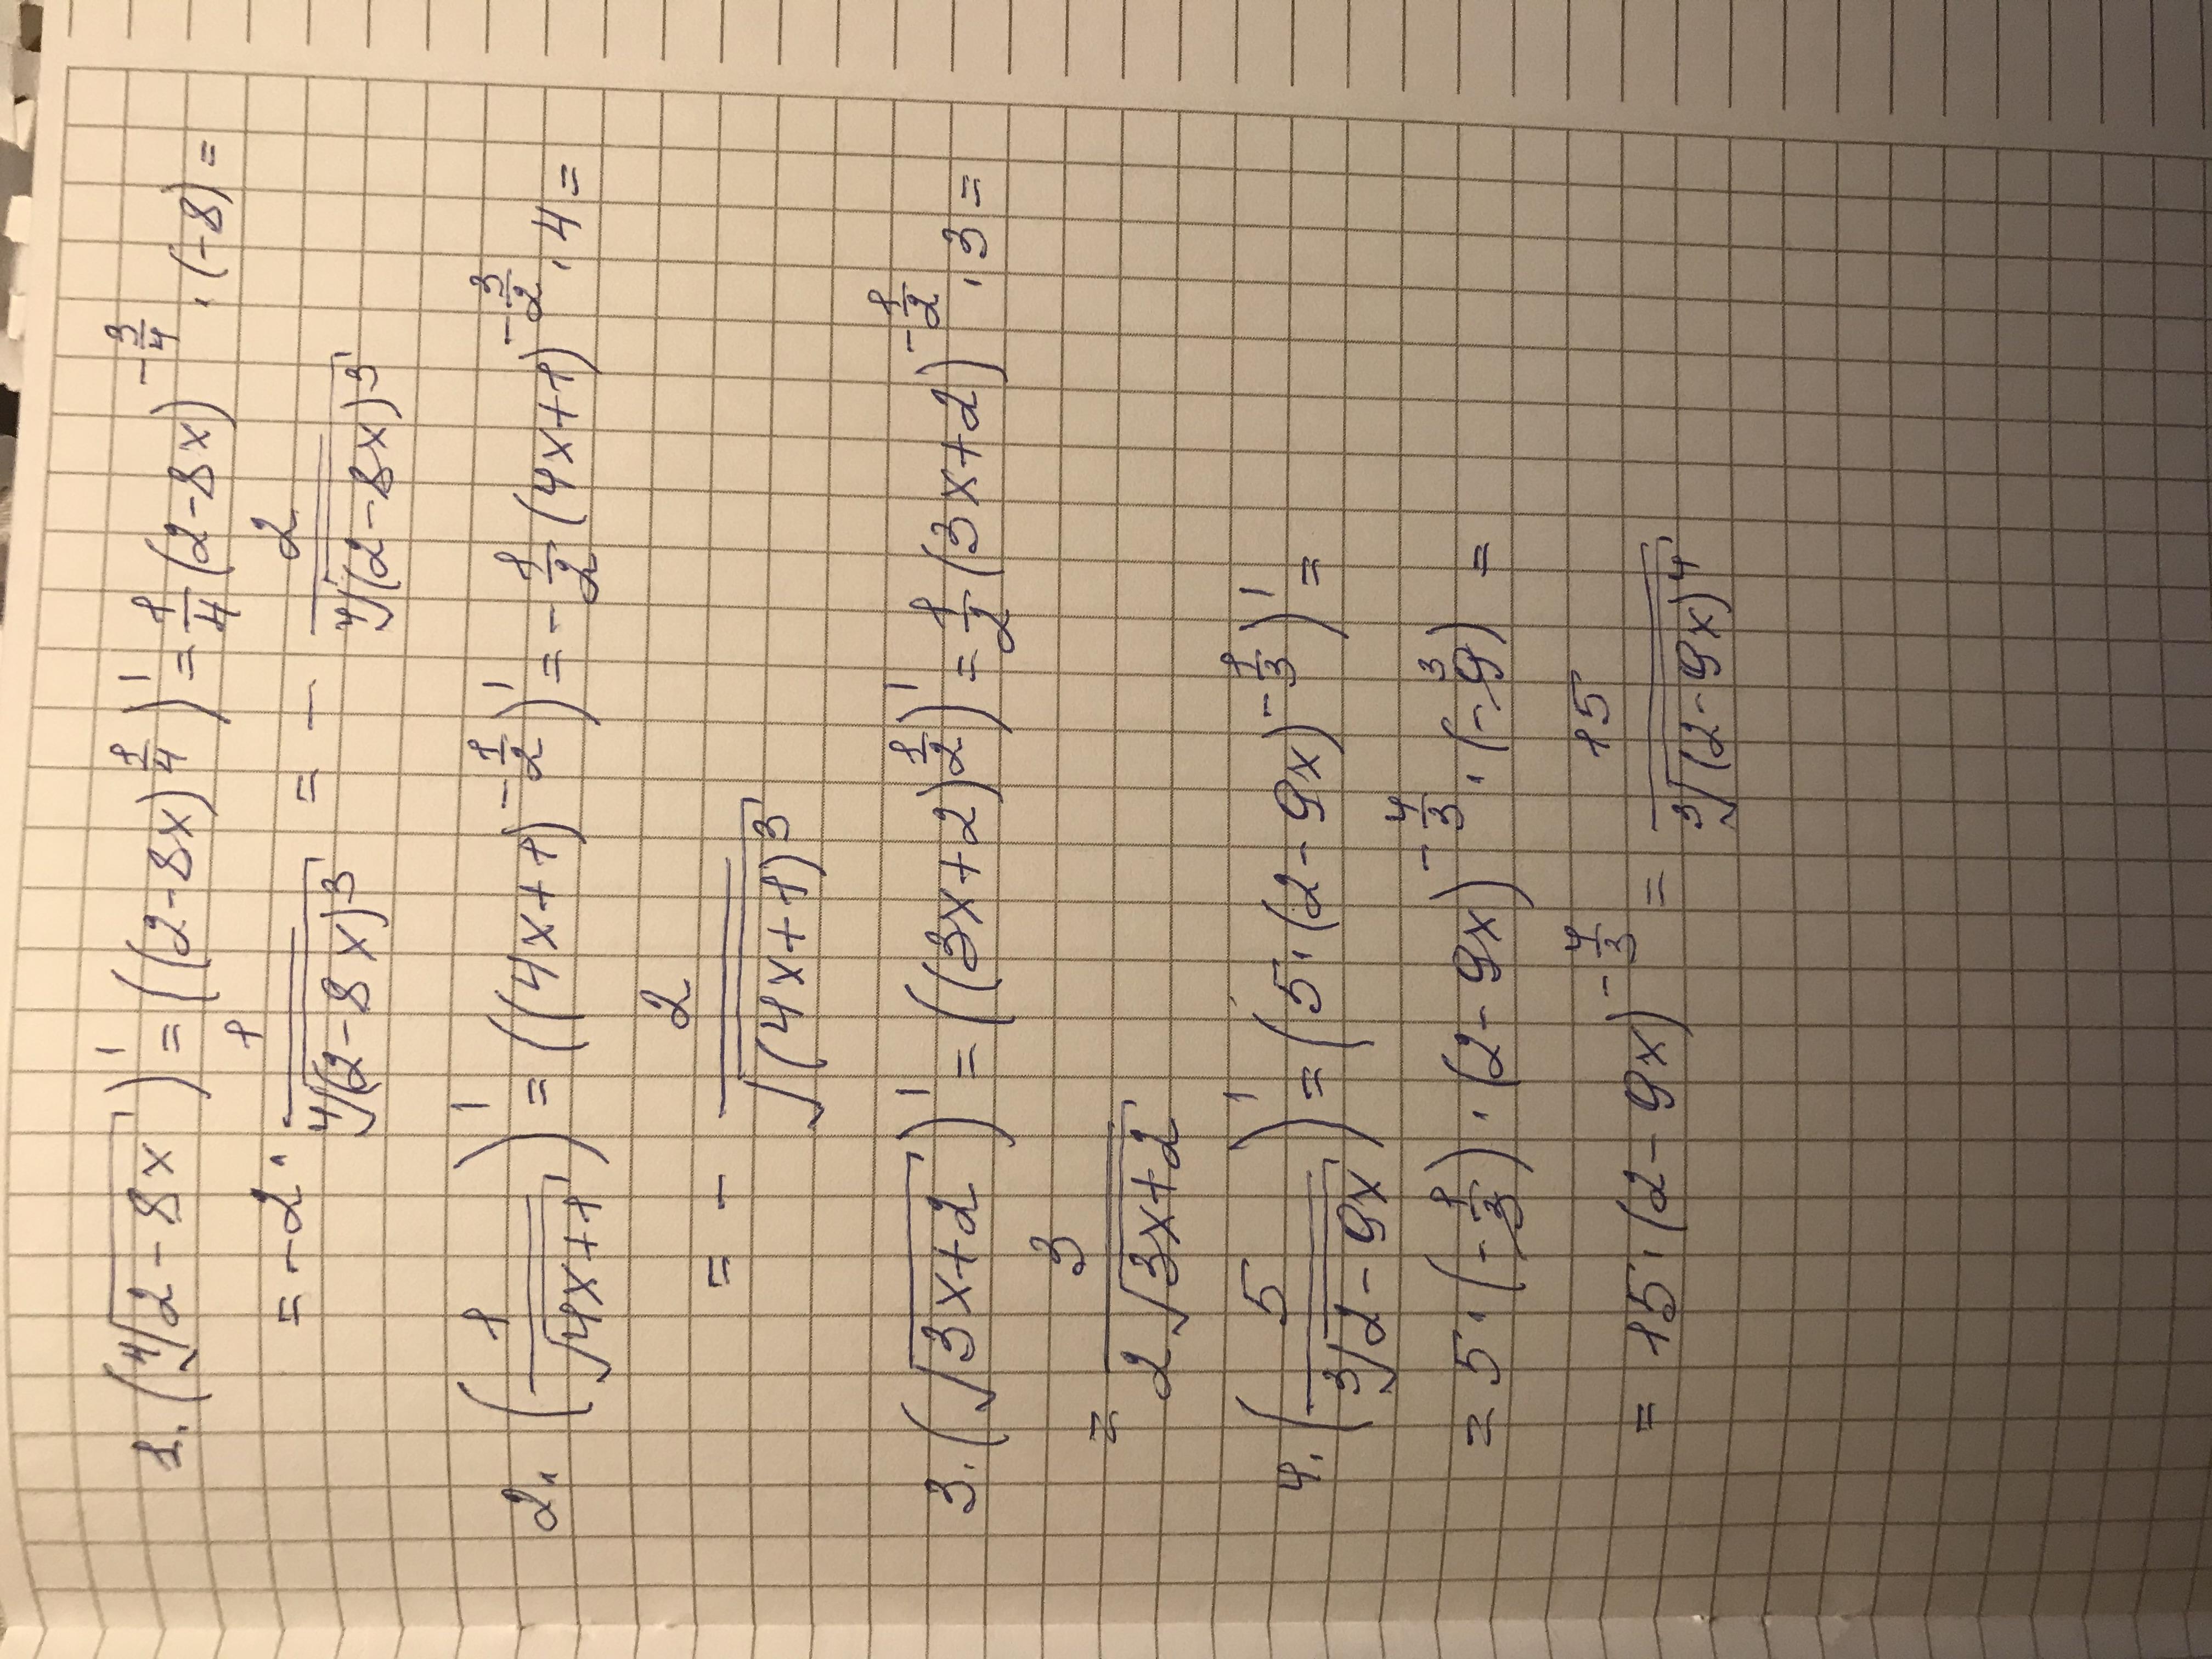 1. (∜(2-8x))' = ((2-8x)^(1/4))' = 1/4 (2-8x)^(-3/4) · (-8) =
= -2 · 1/∜((2-8x)^3) = - 2/∜((2-8x)^3)
2. (1/√(4x+1))' = ((4x+1)^(-1/2))' = -1/2 (4x+1)^(-3/2) · 4 =
= - 2/√((4x+1)^3)
3. (√(3x+2))' = ((3x+2)^(1/2))' = 1/2 (3x+2)^(-1/2) · 3 =
= 3/(2√(3x+2))
4. (5/∛(2-9x))' = (5 · (2-9x)^(-1/3))' =
= 5 · (-1/3) · (2-9x)^(-4/3) · (-9) 3 =
= 15 · (2-9x)^(-4/3) = 15/∛((2-9x)^4)